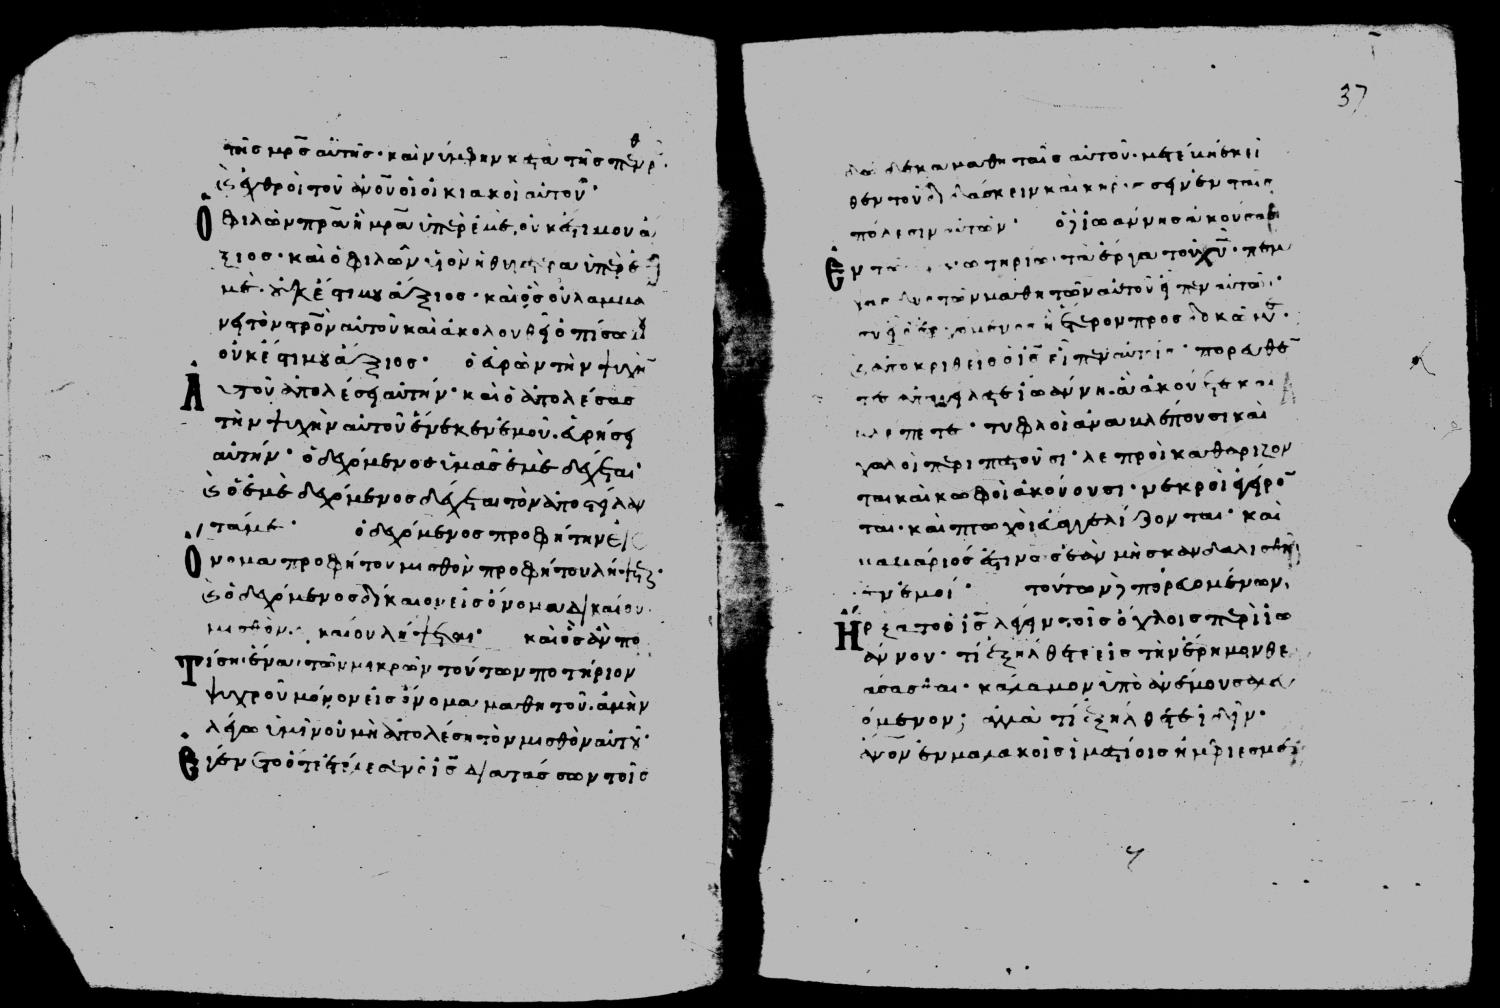 τῆς μρ̅ς αὐτῆς· καὶ νύμφην κατὰ τῆς πενθερ
ἐχθροὶ τοῦ ἀνου οἱ οἰκιακοὶ αὐτοῦ·
Ὁ φιλῶν πρ̅α ἢ μρ̅α ὑπὲρ ἐμὲ, οὐκ ἔστι μου ἄ
ξιος· καὶ ὁ φιλῶν υἱὸν ἢ θυγατέρα ὑπὲρ ἐ
μὲ· οὐκ ἔστι μου ἄξιος· καὶ ὃς οὐ λαμβα
νει τὸν σρο̅ν αὐτοῦ καὶ ἀκολουθεῖ ὀπίσω μου
οὐκ ἔστι μου ἄξιος· ὁ εὑρὼν τὴν ψυχὴ̅
Αὐτοῦ ἀπολέσει αὐτήν· καὶ ὁ ἀπολέσας
τὴν ψυχὴν αὐτοῦ ἕνεκεν ἐμοῦ. εὑρήσει
αὐτήν· ὁ δεχόμενος ὑμᾶς ἐμὲ δέχεται·
καὶ ὁ ἐμὲ δεχόμενος δέχεται τὸν ἀποστείλαν
τά με· ὁ δεχόμενος προφήτην εἰς
Ὄνομα προφήτου μισθὸν προφήτου λήψεται·
καὶ ὁ δεχόμενος δίκαιον εἰς ὄνομα δικαίου·
μισθὸν δικαίου λήψεται· καὶ ὃς ἂν πο
Τίσῃ ἕνα τῶν μικρῶν τούτων ποτήριον
ψυχροῦ μόνον εἰς ὄνομα μαθητοῦ. ἀμὴν
λέγω ὑμῖν οὐ μὴ ἀπολέσῃ τὸν μισθὸν αὐτοῦ·
Ἐγένετο ὅτε ἐτέλεσεν ὁ ις̅ διατάσσων τοῖς
37
δώδεκα μαθηταῖς αὐτοῦ· μετέβη ἐκεῖ
θεν τοῦ διδάσκειν καὶ κηρύσσειν ἐν ταῖς
πόλεσιν αὐτῶν· ὁ ἰωάννης ἀκούσας
Ἐν τῷ δεσμωτηρίω· τὰ ἔργα τοῦ χυ̅· πεμ
ψας δύο τῶν μαθητῶν αὐτοῦ εἶπεν αὐτῶ·
σὺ εἶ ὁ ἐρχόμενος ἢ ἕτερον προσδοκῶμεν·
καὶ ἀποκριθεὶς ὁ ις̅ εἶπεν αὐτοῖς· πορευθέ̅
τες ἀπαγγείλατε ἰωάννη. ἃ ἀκούετε καὶ
βλέπετε· τυφλοὶ ἀναβλέπουσι καὶ
χωλοὶ περιπατοῦσι· λεπροὶ καθαρίζον
ται καὶ κωφοὶ ἀκούουσι· νεκροὶ ἐγείρο̅
ται· καὶ πτωχοὶ εὐαγγελίζονται· καὶ
μακάριός ἐστιν ὃς ἐὰν μὴ σκανδαλισθῇ
ἐν ἐμοί· τούτων δὲ πορευομένων,
Ἤρξατο ὁ ις̅ λέγειν τοῖς ὄχλοις περὶ ἰω
άννου· τί ἐξήλθετε εἰς τὴν ἔρημον θε
άσασθαι· κάλαμον ὑπὸ ἀνέμου σαλευ
όμενον; ἀλλὰ τί ἐξήλθετε ἰδεῖν·
ἄνον ἐν μαλακοῖς ἱματίοις ἠμφιεσμέ